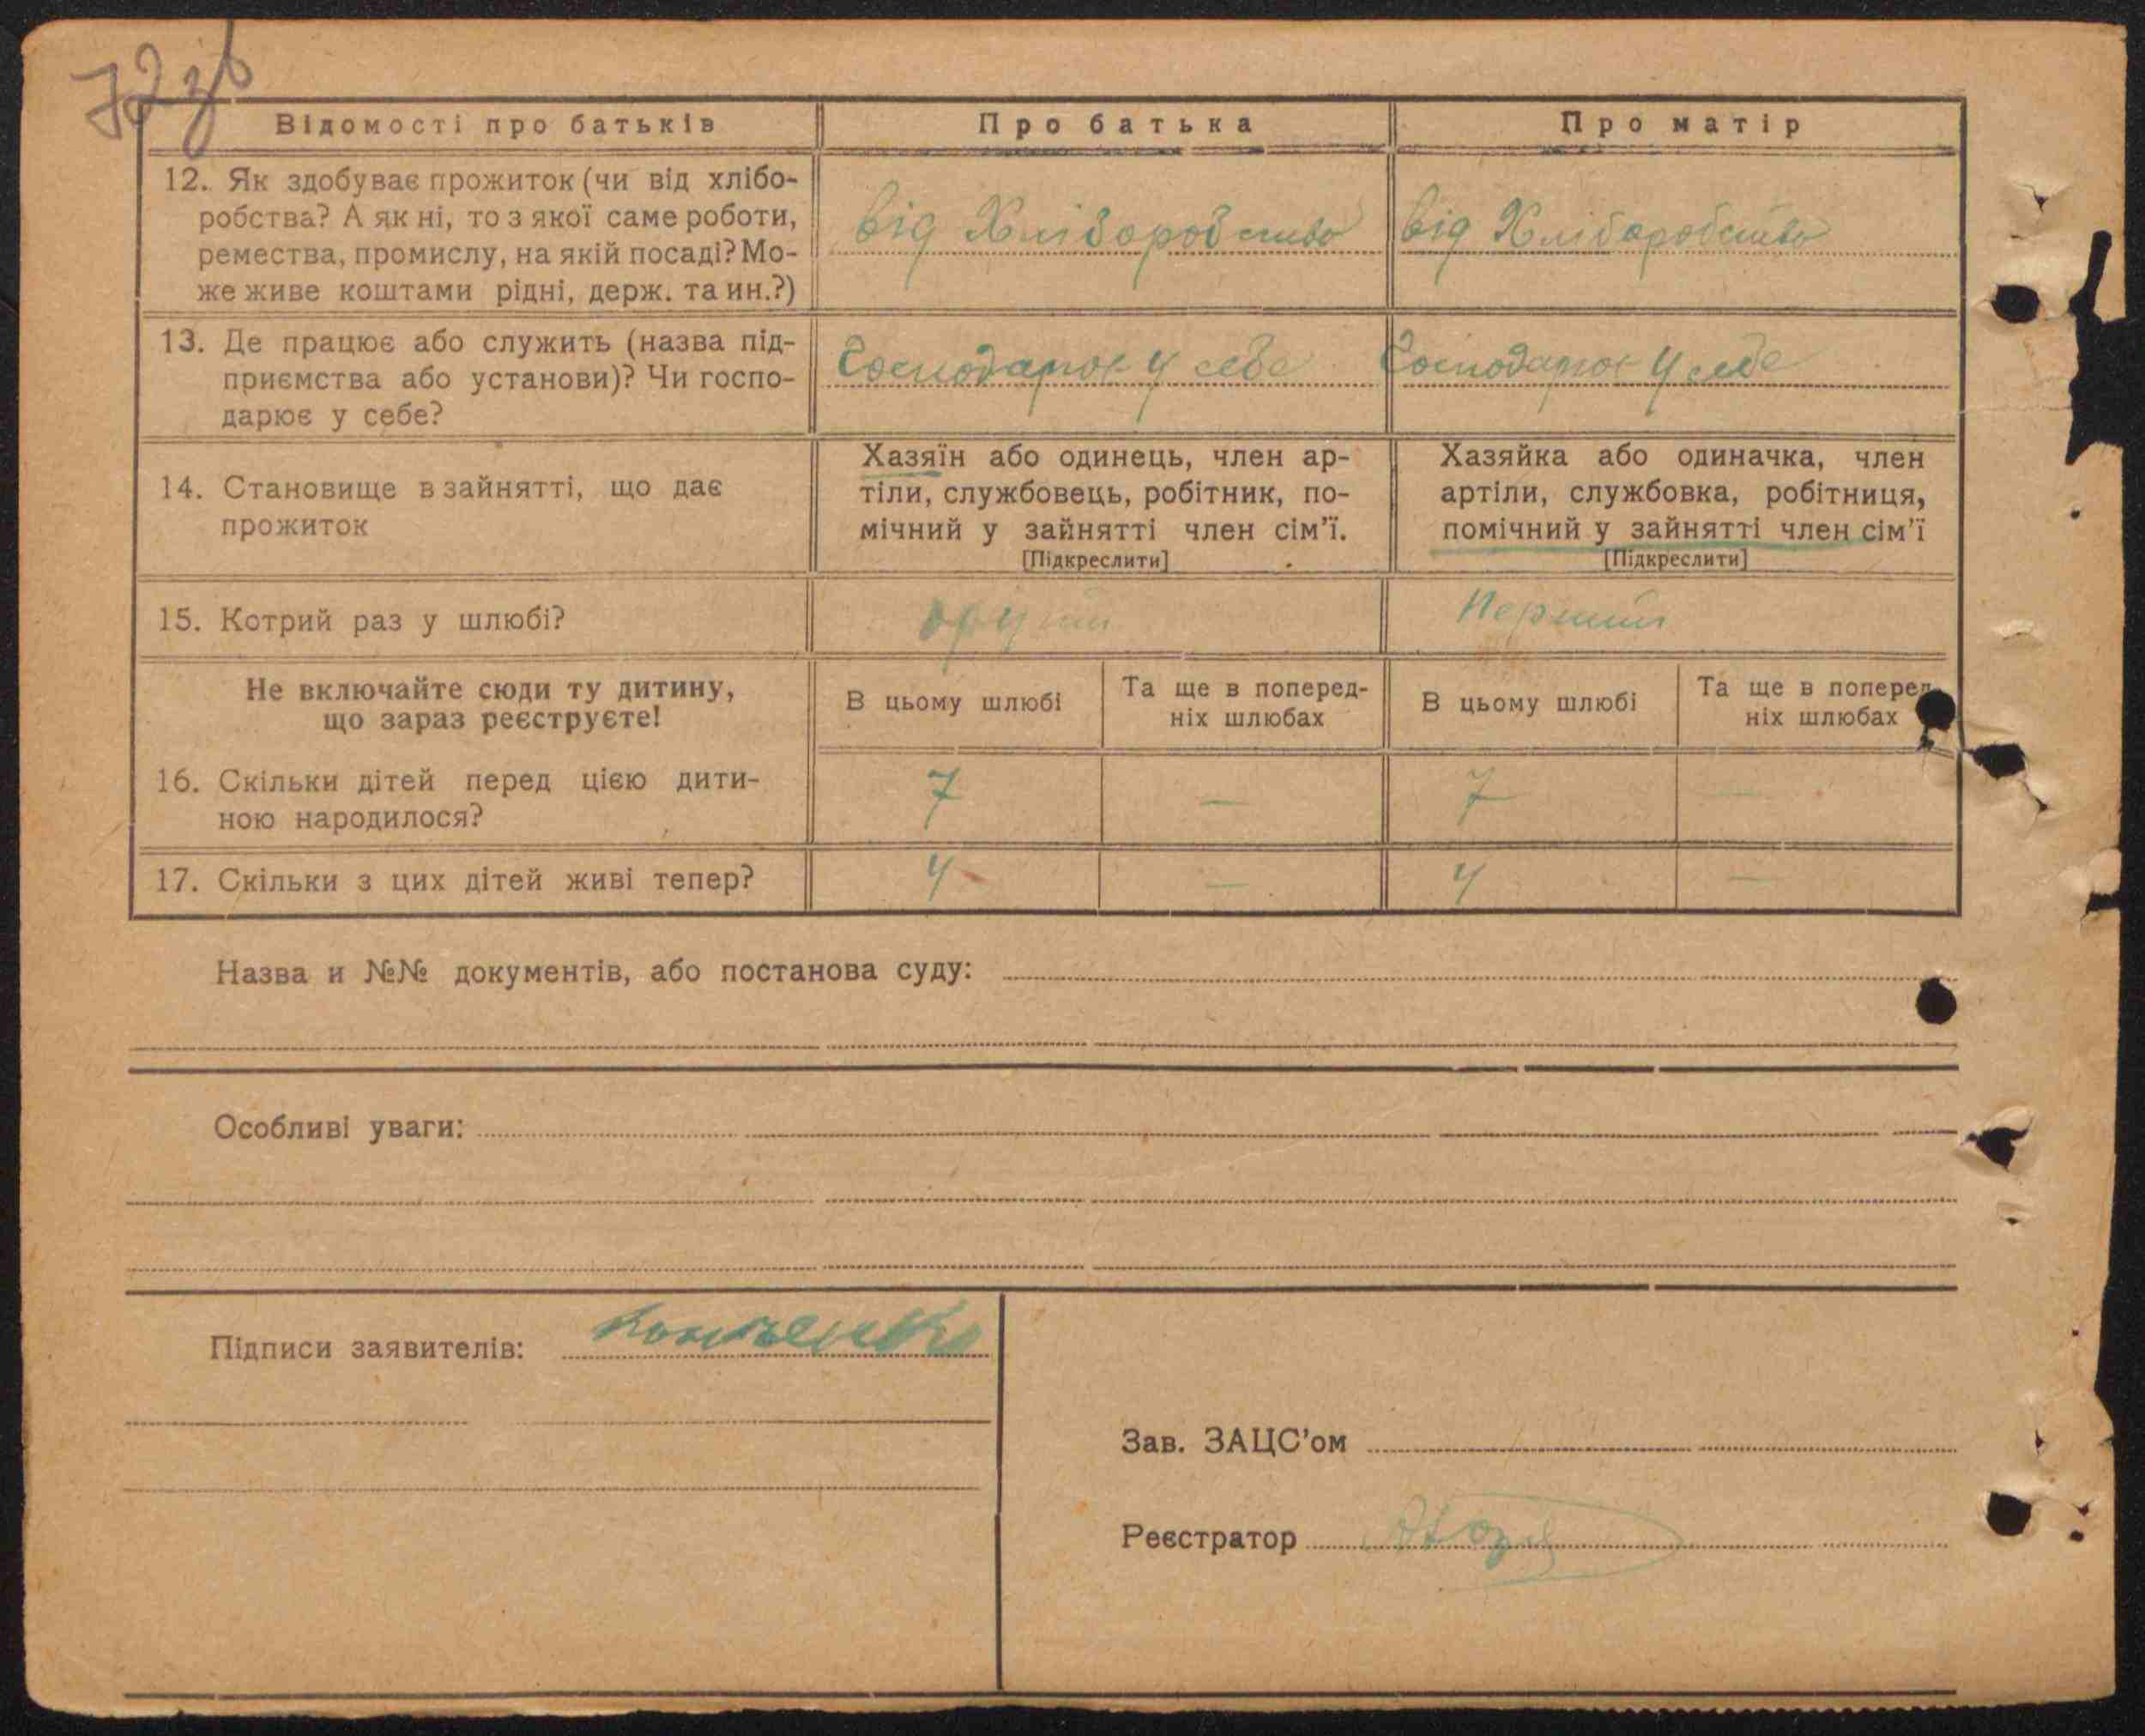 72зв
Відомості про батьків
Про батька
Про матір
12. Як здобуває прожиток (чи від хлібо-
робства? А як ні, то з якої саме роботи,
ремества, промислу, на якій посаді? Мо-
же живе коштами рідні, держ. та ин.?)
від Хліборобство
від Хліборобство
13. Де працює або служить (назва під-
приємства або установи)? Чи госпо-
дарює у себе?
Господарює у себе
Господарює у себе
14. Становище в зайнятті, що дає
прожиток
Хазяїн або одинець, член ар-
тіли, службовець, робітник, по-
мічний у зайнятті член сім'ї.
[Підкреслити]
Хазяйка або одиначка, член
артіли, службовка, робітниця,
помічний у зайнятті член сім'ї
[Підкреслити]
15. Котрий раз у шлюбі?
Перший
Не включайте сюди ту дитину,
що зараз реєструєте!
В цьому шлюбі
Та ще в поперед-
ніх шлюбах
В цьому шлюбі
Та ще в поперед-
ніх шлюбах
16. Скільки дітей перед цією дити-
ною народилося?
7 — 7 —
17. Скільки з цих дітей живі тепер?
4 — 4 —
Назва и №№ документів, або постанова суду:
Особливі уваги:
Підписи заявителів:
Зав. ЗАЦС'ом
Реєстратор